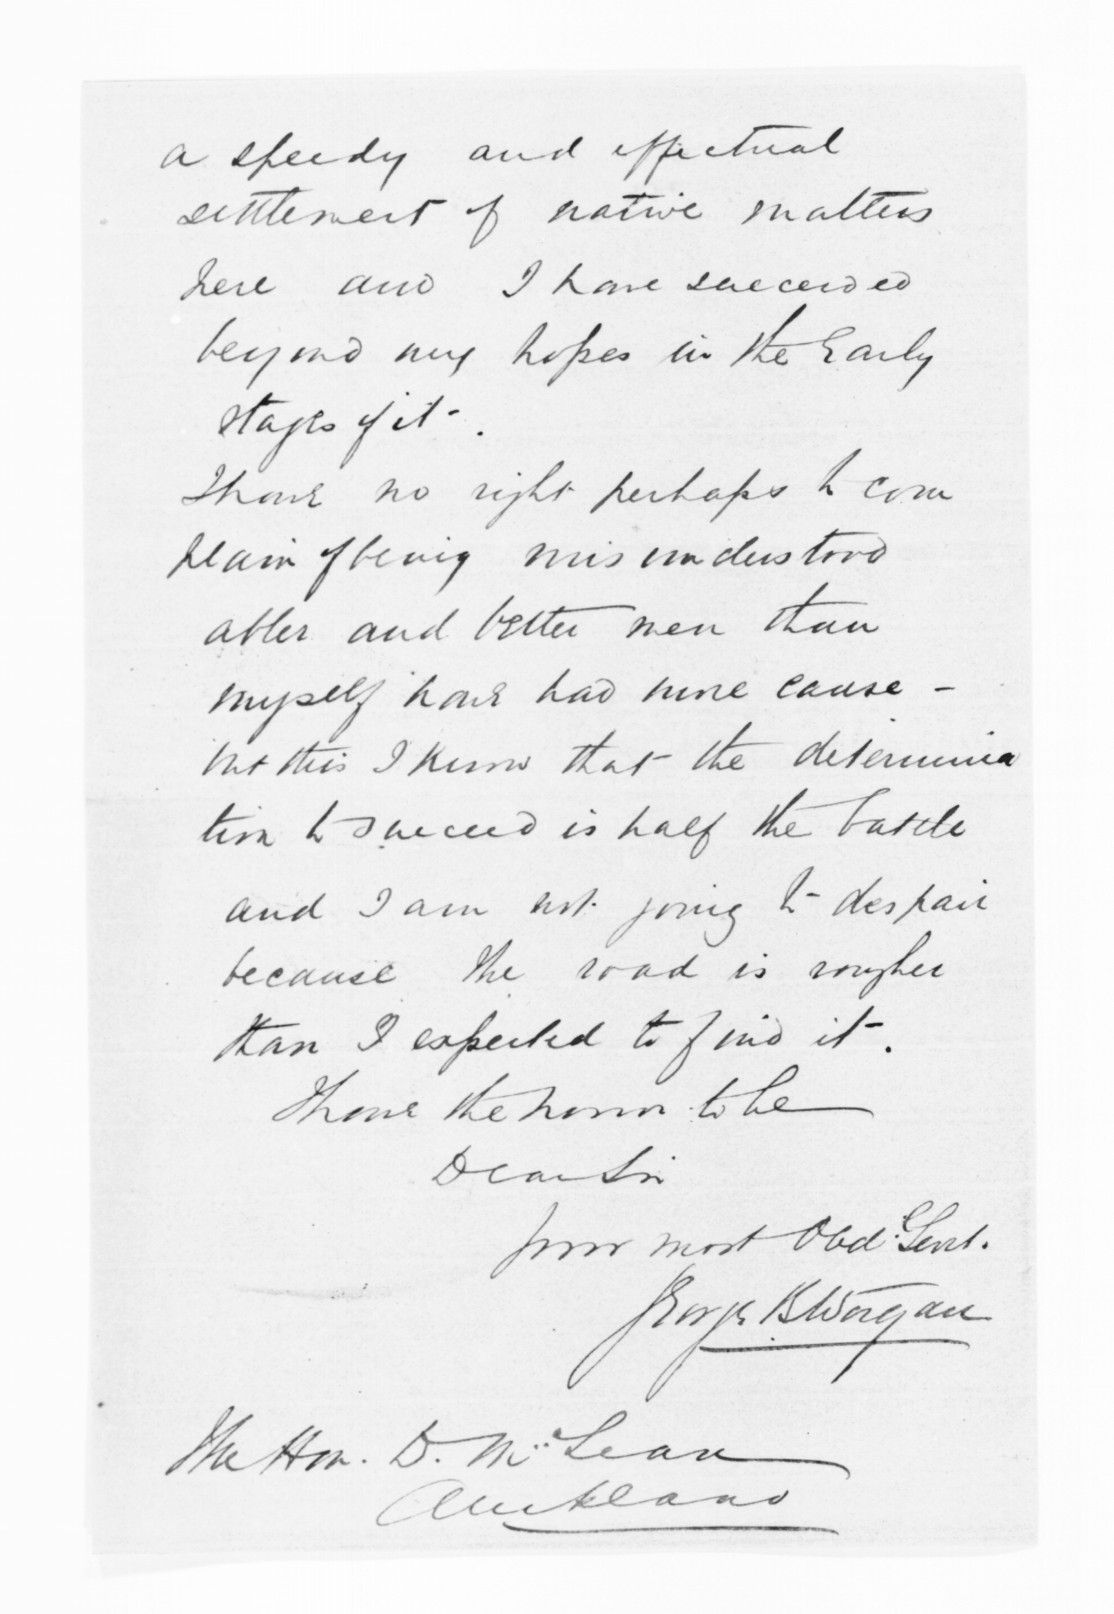 a speedy and effectual
settlement of native matters
here and I have succeeded
beyond my hopes in the Early
stages of it.
I have no right perhaps to com
plain of being misunderstood
abler and better men than
myself have had more cause -
but this I know that the determina
tion to succeed is half the battle
and I am not going to despair
because the road is rougher
than I expected to find it.
I have the honor to be
Dear Sir
your most Obd. Servt.
George B Worgan
The Hon. D. McLean
Auckland